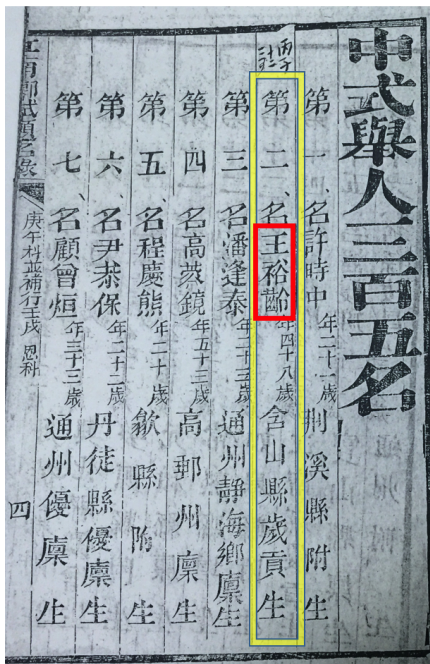 中式舉人三百五名
第一名許時中年二十一歲荆溪縣附生
第二名王裕齡年四十八歲含山縣歲貢生
第三名潘逢泰年二十三歲通州靜海鄉廩生
第四名高蓺鏡年五十三歲高郵州廩生
第五名程慶熊年二十歲歙縣附生
第六名尹恭保年二十二歲丹徒縣優廩生
第七名顧曾烜年三十三歲通州優廩生
江南鄉試題名錄
庚午科並補行壬戌恩科
四